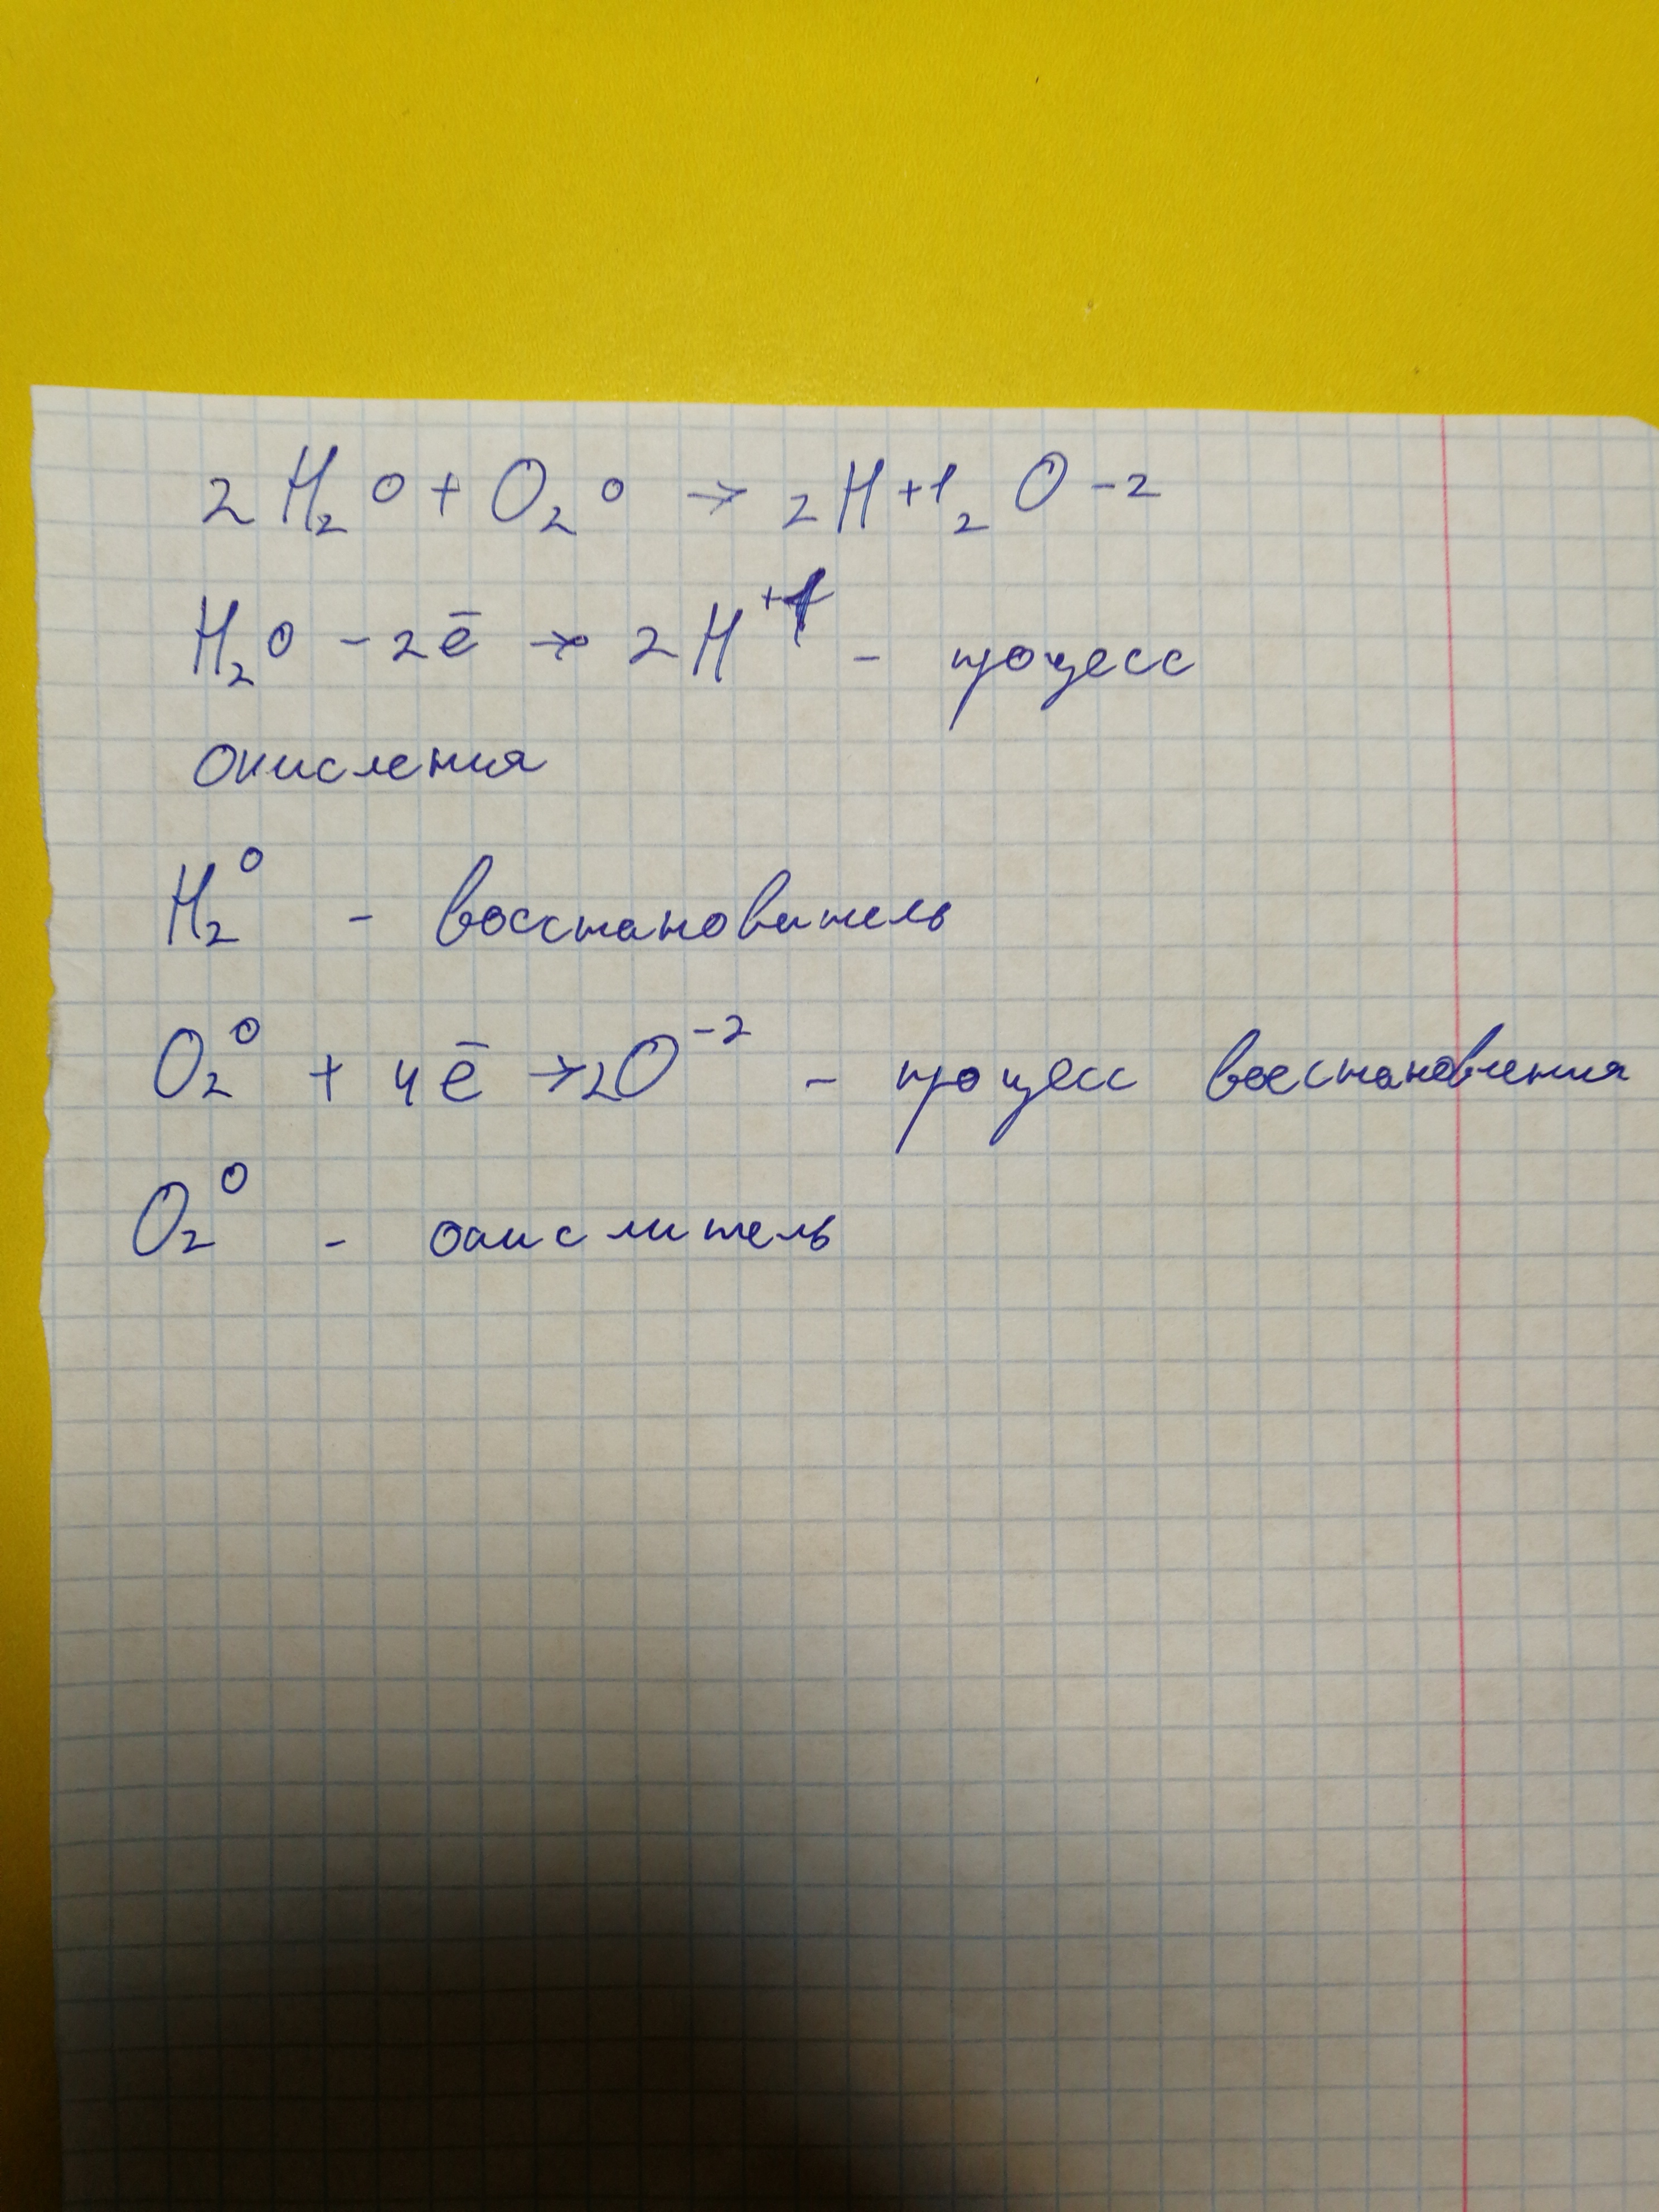 2 H₂ ⁰ + O₂ ⁰ → 2H +1₂ O -2
H₂ ⁰ - 2ē → 2H⁺¹ - процесс
окисления
H₂⁰ - восстановитель
O₂⁰ + 4ē → 2O⁻² - процесс восстановления
O₂⁰ - окислитель